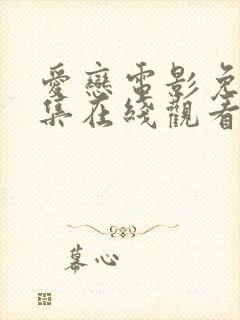 愛戀電影免
集在綫觀看
蕃心